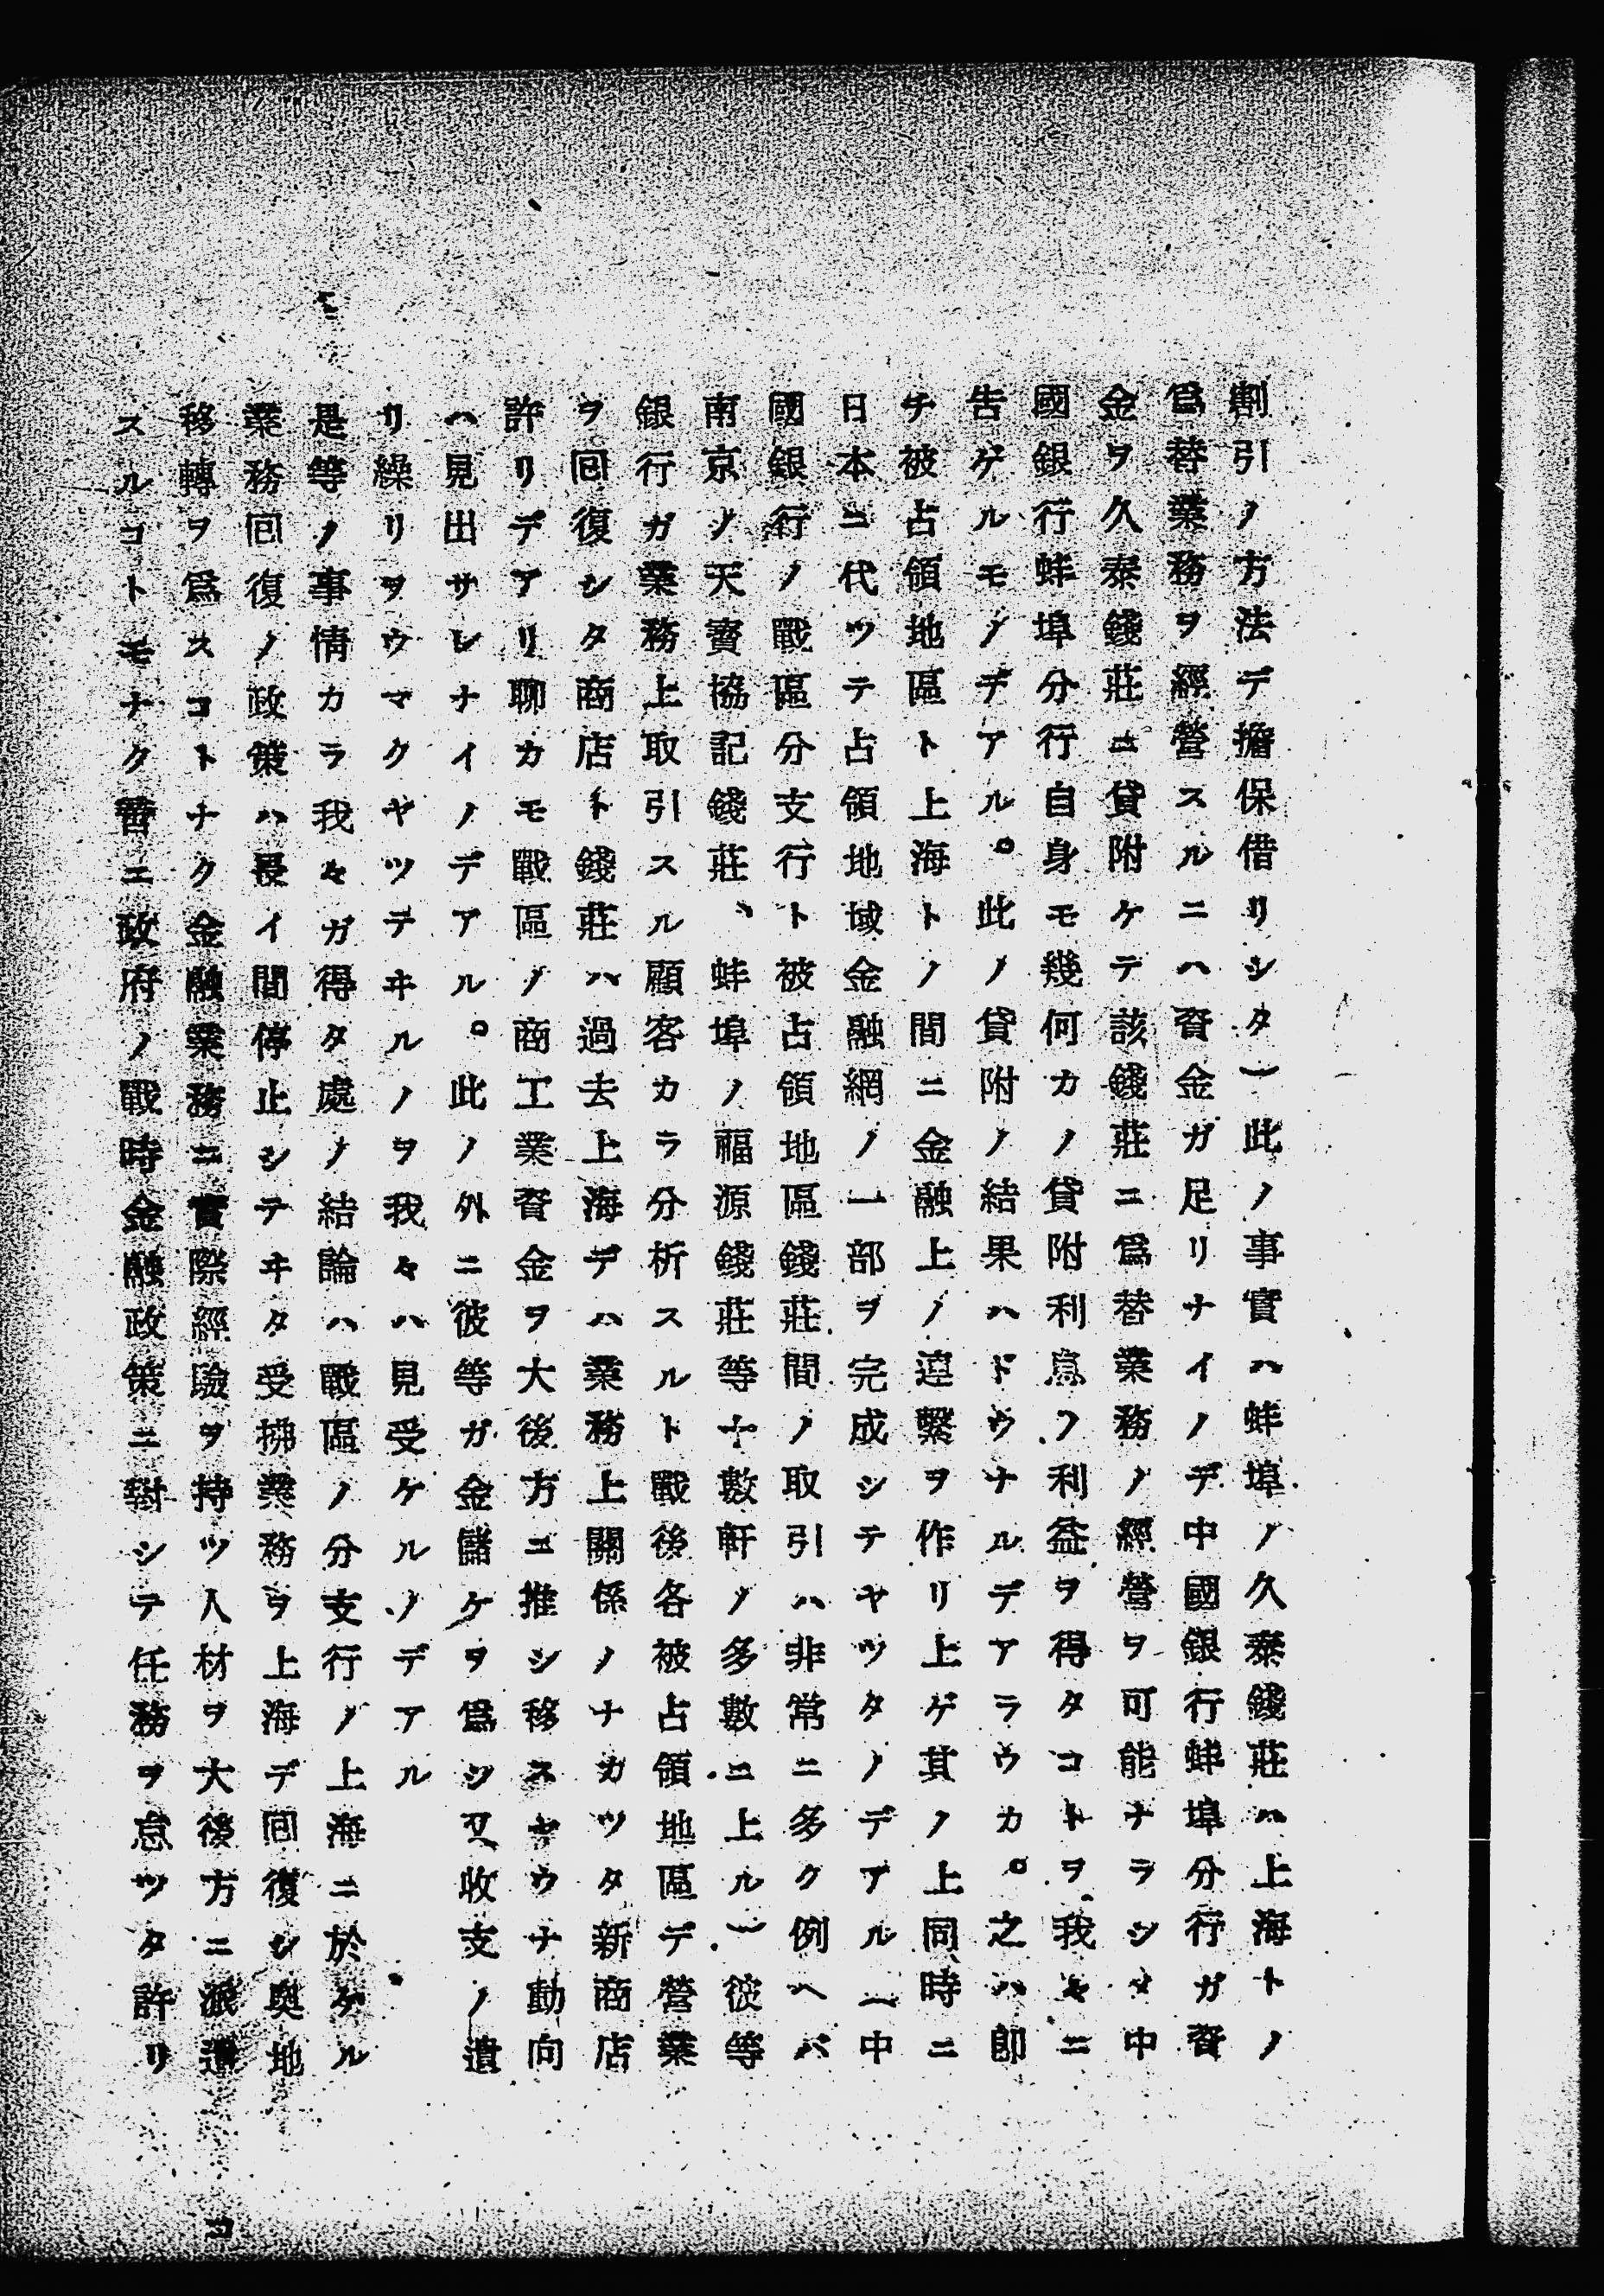 割引ノ方法デ擔保借リシタ(此ノ事實ハ蚌埠ノ久泰錢莊ハ上海トノ
爲替業務ヲ經營スルニハ資金ガ足リナイノデ中國銀行蚌埠分行ガ資
金ヲ久泰錢莊ニ貸附ケテ該錢莊ニ爲替業務ノ經營ヲ可能ナラシメ中
國銀行蚌埠分行自身モ幾何カノ貸附利息ノ利益ヲ得タコトヲ我々ニ
告ゲルモノデアル。此ノ貸附ノ結果ハドウナルデアラウカ。之ハ卽
チ被占領地區ト上海トノ間ニ金融上ノ連繫ヲ作リ上ゲ其ノ上同時ニ
日本ニ代ツテ占領地域金融網ノ一部ヲ完成シテヤツタノデアル(中
國銀行ノ戰區分支行ト被占領地區錢莊間ノ取引ハ非常ニ多ク例ヘバ
南京ノ天寶協記錢莊、蚌埠ノ福源錢莊等十數軒ノ多數ニ上ル)彼等
銀行ガ業務上取引スル顧客カラ分析スルト戰後各被占領地區デ營業
ヲ囘復シタ商店ト錢莊ハ過去上海デハ業務上關係ノナカツタ新商店
許リデアリ聊カモ戰區ノ商工業資金ヲ大後方ニ推シ移スヤウナ動向
ハ見出サレナイノデアル。此ノ外ニ彼等ガ金儲ケヲ爲シ又收支ノ遣
リ繰リヲウマクヤツテヰルノヲ我々ハ見受ケルノデアル。
是等ノ事情カラ我々ガ得タ處ノ結論ハ戰區ノ分支行ノ上海ニ於ケル
業務囘復ノ政策ハ長イ間停止シテヰタ受拂業務ヲ上海デ囘復シ奧地
移轉ヲ爲スコトナク金融業務ニ實際經驗ヲ持ツ人材ヲ大後方ニ派遣
スルコトモナク曾ニ政府ノ戰時金融政策ニ對シテ任務ヲ怠ツタ許リ
コ